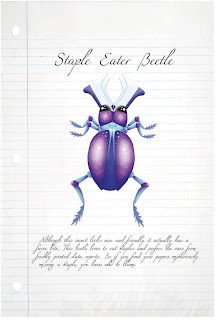 Staple Eater Beetle
Although this insect looks nice and friendly it actually has a
fierce bite. This beetle loves to eat staples and prefers the ones from
freshly printed data reports. So if you find your papers mysteriously
missing a staple, you know who to blame.